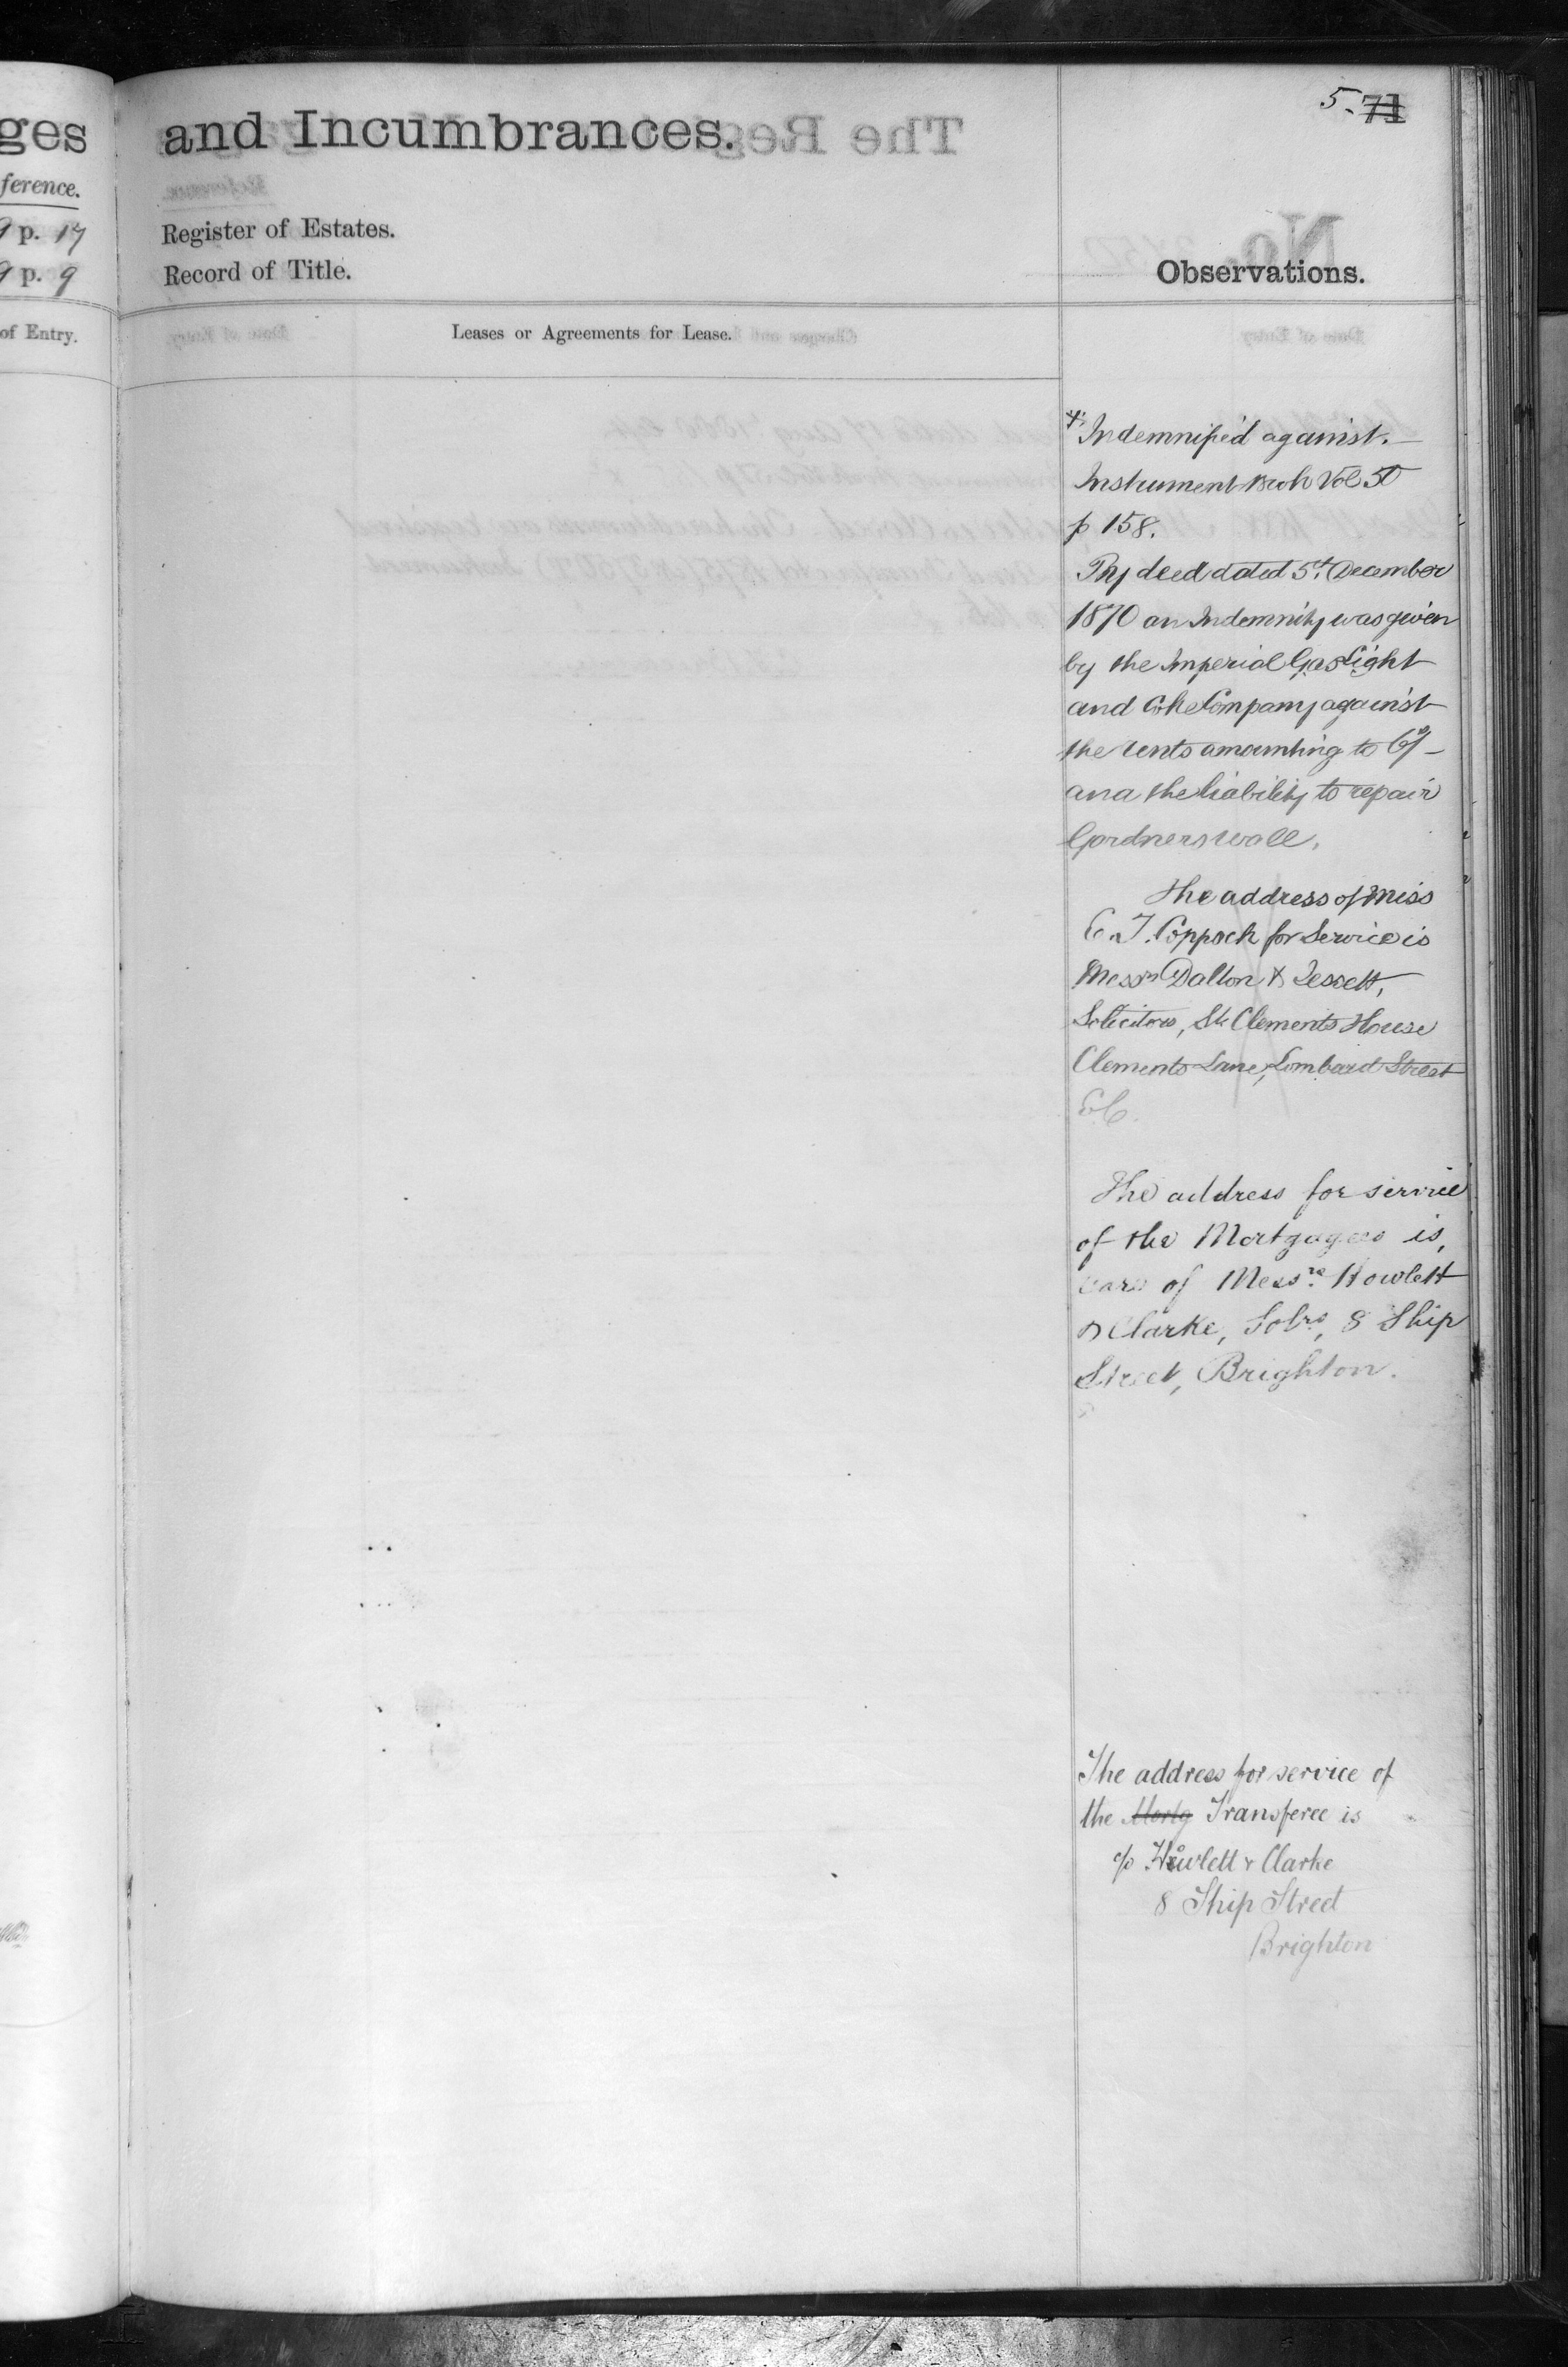 5. 71
ges
and Incumbrances.
ference.
p. 17
Register of Estates.
p. 9
Record of Title.
Observations.
of Entry.
Leases or Agreements for Lease.
Indemnified against.
Instrument Book Vol 50
p 158.
By deed dated 5th December
1870 an Indemnity was given
by the Imperial Gas Light
and Coke Company against
the rents amounting to
and the liability to repair
Gardners wall.
The address of Miss
E. T. Coppock for Service is
Messrs Dalton & Jessett,
Solicitors, St Clements House
Clements Lane, Lombard Street
E.C.
The address for service
of the Mortgagees is,
care of Messrs. Howlett
& Clarke, Solrs, 8 Ship
Street, Brighton.
The address for service of
the Mortg Transferee is
c/o Howlett & Clarke
8 Ship Street
Brighton